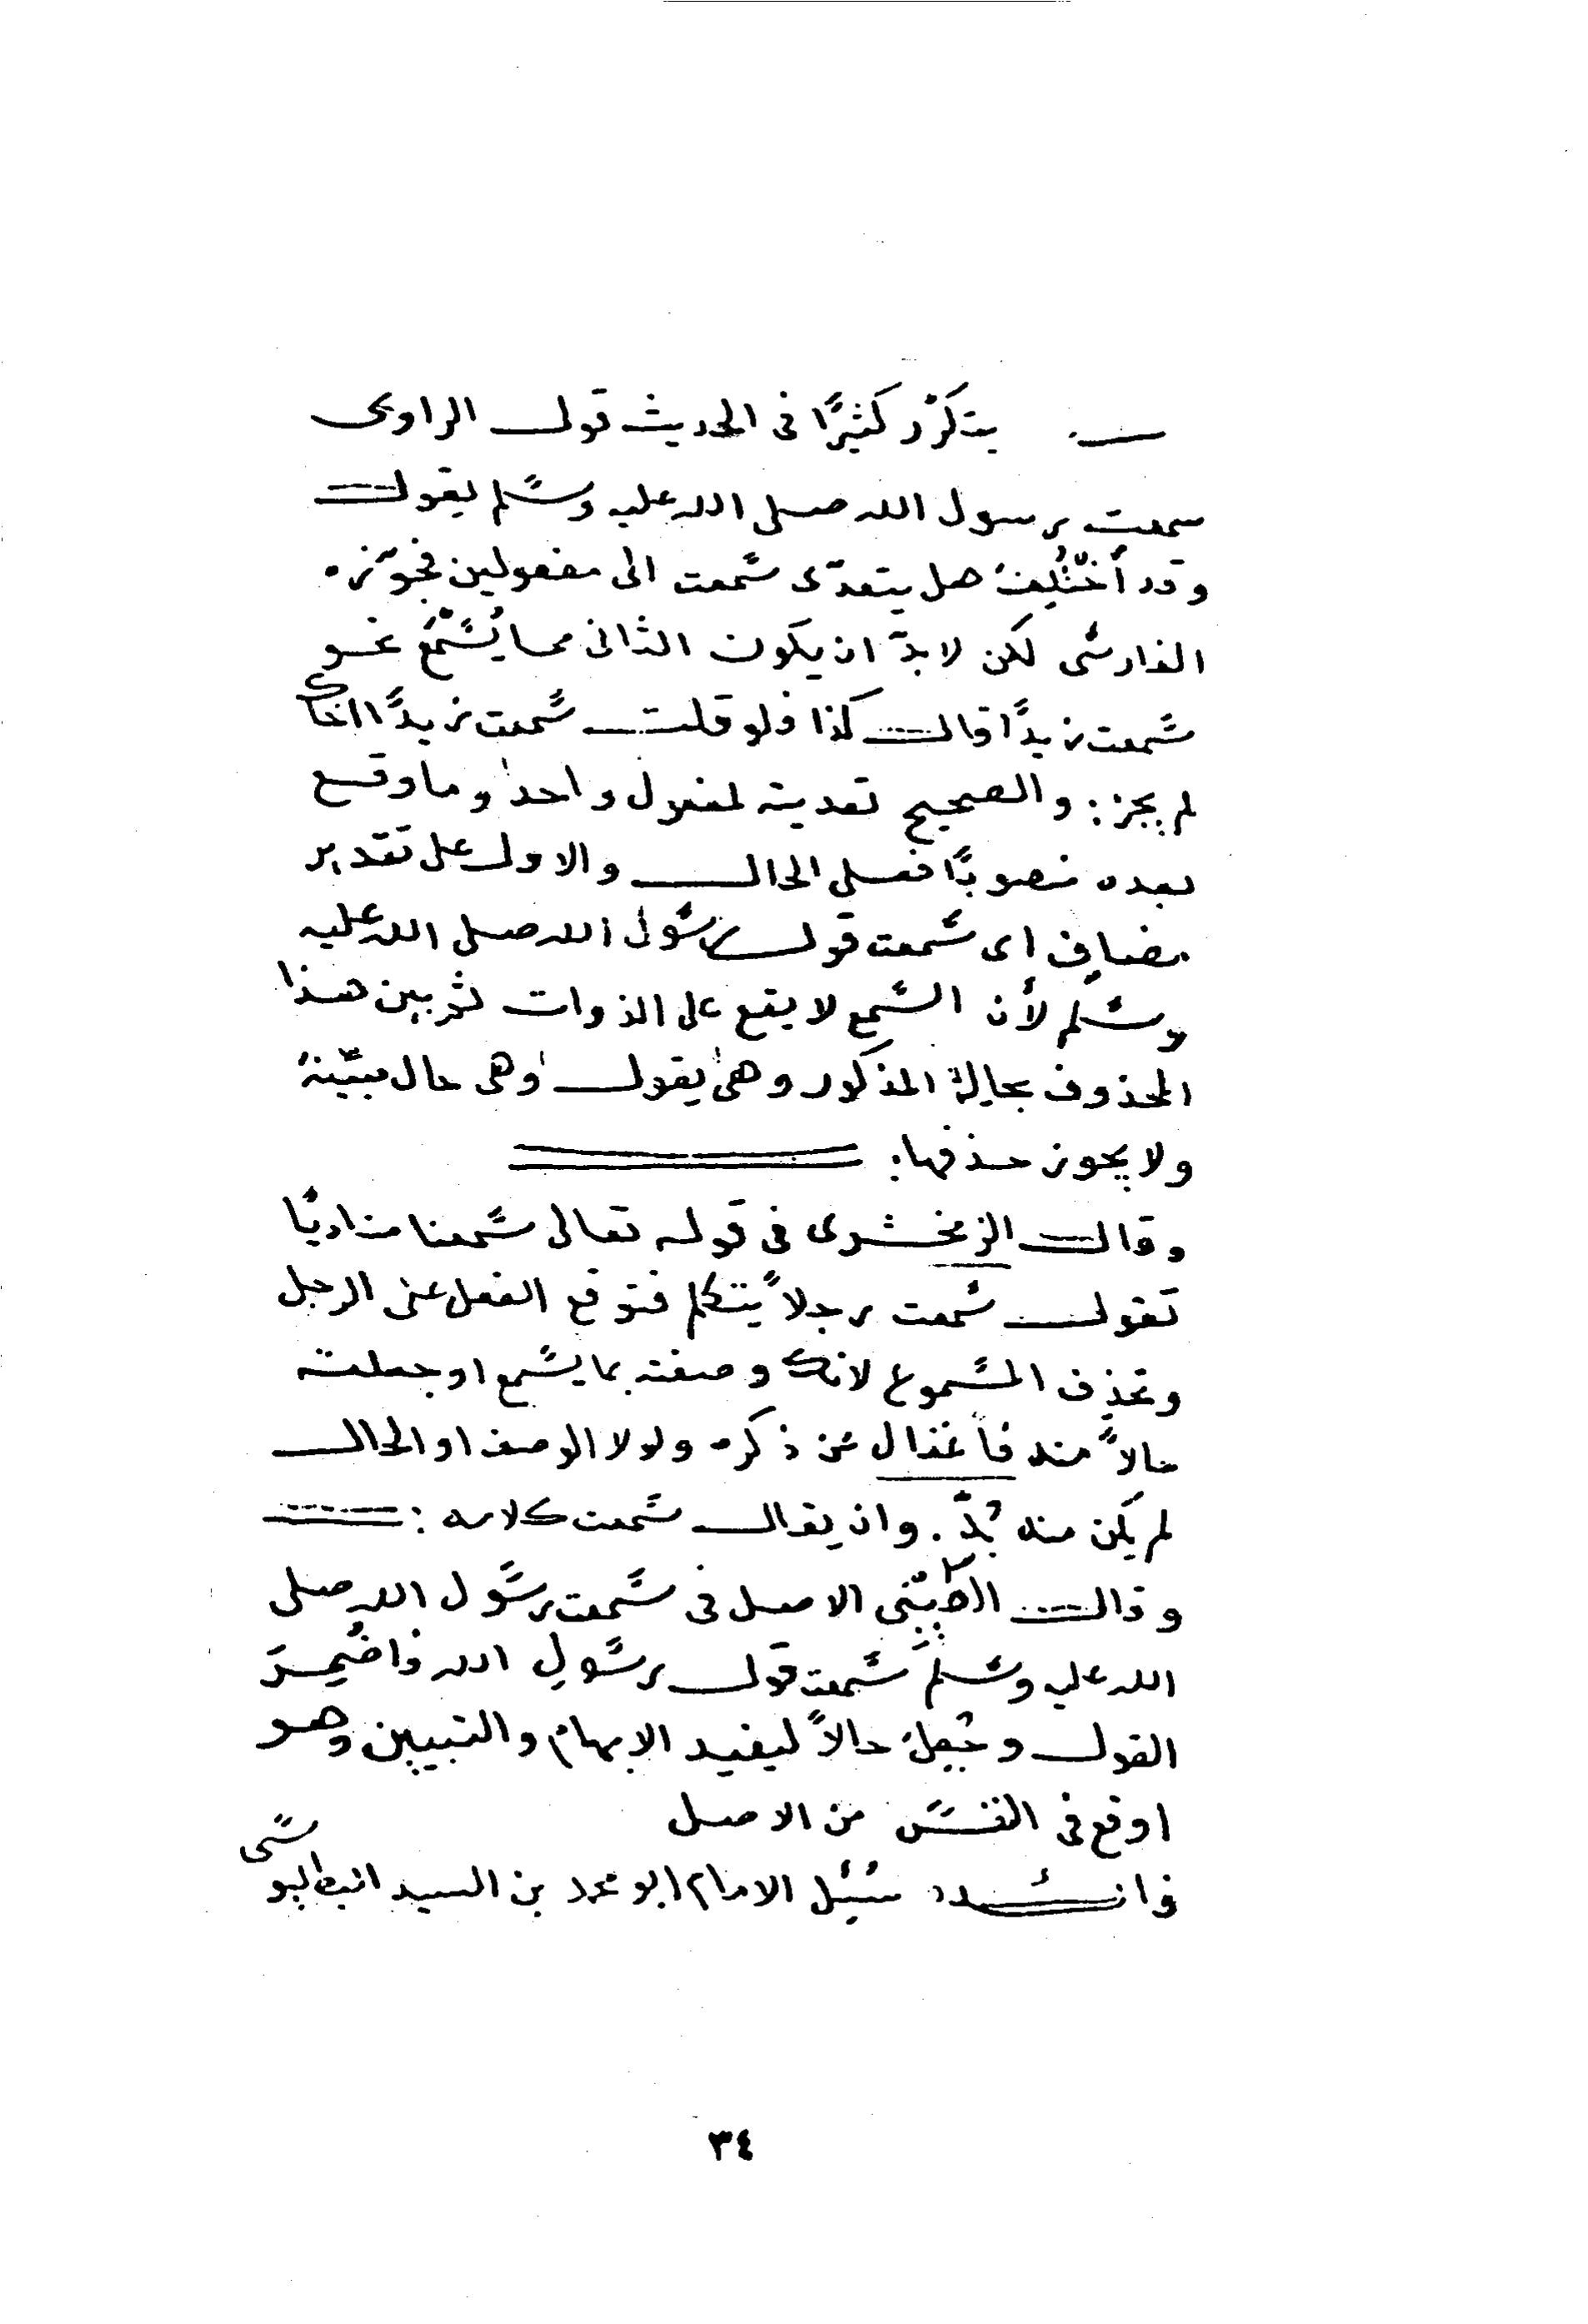 يتكرّر كثيرًا فى الحديث قول الراوى
سمعت رسول الله صلى الله عليه وسلم يقول
وقد اُختُلِفَ هل يتعدّى سمعت الى مفعولين فجوّزه
الفارسى لكن لا بدّ ان يكون الثانى مما يُسْمَع نحو
سمعت زيدًا قال كذا فلو قلت سمعت زيدًا اخاك
لم يجز: والصحيح تعديته لمفعول واحد وما وقع
بعده منصوبًا فعلى الحال والاول على تقدير
مضاف اى سمعت قول رسول الله صلى الله عليه
وسلم لأن السمع لا يقع على الذوات ثم بين هذا
المحذوف بحاله المذكور وهى يقول وهى حال مبيّنة
ولا يجوز حذفها:
وقال الزمخشرى فى قوله تعالى سمعنا مناديًا
تقول سمعت رجلاً يتكلم فتوقع الفعل على الرجل
وتحذف المسموع لانك وصفته بما يسمع او جعلته
حالاً منه فأغفال عن ذكره ولولا الوصف او الحال
لم يكن منه بُدّ. وان يقال سمعت كلامه:
وقال الطيّبى الاصل فى سمعت رسول الله صلى
الله عليه وسلم سمعت قول رسول الله فاضمر
القول وجُعل حالاً ليفيد الابهام والتبيين وهو
اوقع فى النفس من الاصل
فائدة سُئل الامام ابو محمد بن السيد البطاليوسى
٣٤